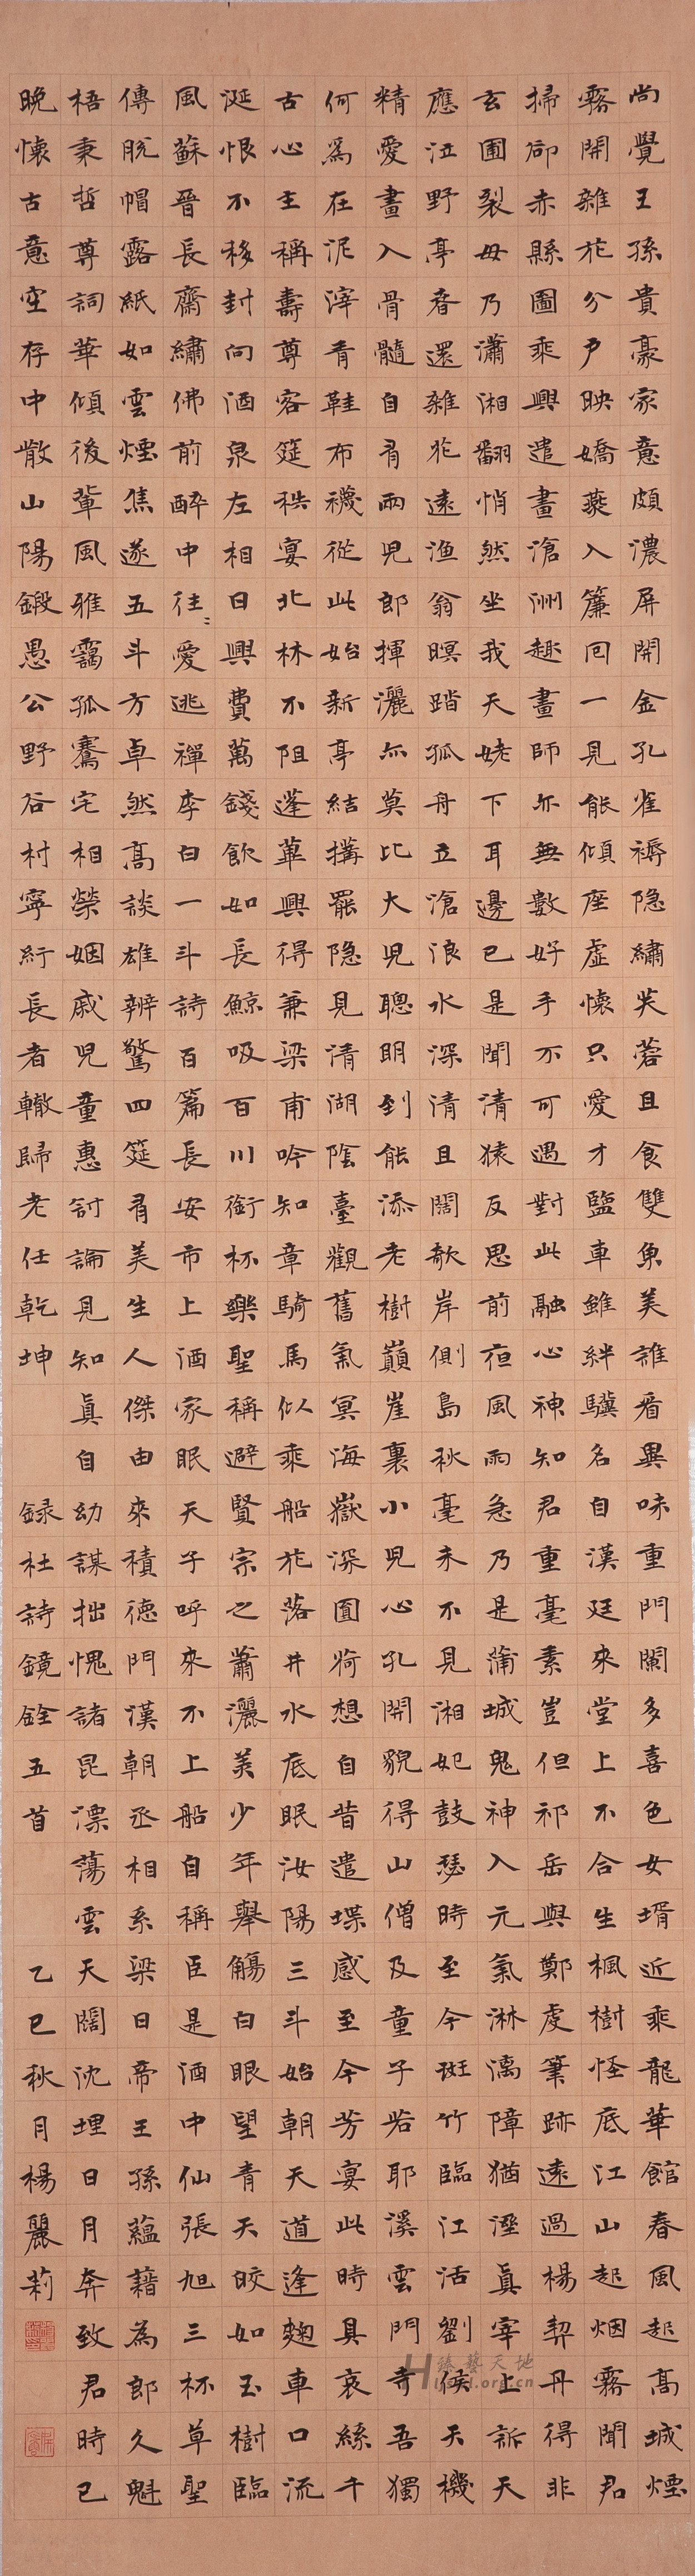 尚覺王孫貴豪家意頗濃屏開金孔雀褥隐繡芙蓉且食雙魚美誰看異味重門闌多喜色女壻近乘龍華館春風起高城煙
霧開雜花分户映嬌燕入簾回一見能傾座虛懷只愛才鹽車雖絆驥名自漢廷來堂上不合生楓樹怪底江山起烟霧聞君
掃卻赤縣圖乘興遣畫滄洲趣畫師亦無數好手不可遇對此融心神知君重毫素豈但祁岳與鄭虔筆跡遠過楊契丹得非
玄圃裂毋乃瀟湘翻悄然坐我天姥下耳邊已是聞清猿反思前夜風雨急乃是蒲城鬼神入元氣淋漓障猶溼真宰上訴天
應泣野亭春還雜花遠漁翁暝踏孤舟立滄浪水深清且闊欹岸側島秋毫末不見湘妃鼓瑟時至今斑竹臨江活劉侯天機
精愛畫入骨髓自有兩兒郎揮灑亦莫比大兒聰明到能添老樹巔崖裏小兒心孔開貌得山僧及童子若耶溪雲門寺吾獨
何爲在泥滓青鞋布襪從此始新亭結搆罷隐見清湖陰臺觀舊氣冥海嶽深圓荷想自昔遣堞感至今芳宴此時具哀絲千
古心主稱壽尊客筵秩宴北林不阻蓬蓽興得兼梁甫吟知章騎馬似乘船花落井水底眠汝陽三斗始朝天道逢麴車口流
涎恨不移封向酒泉左相日興費萬錢飲如長鯨吸百川銜杯樂聖稱避賢宗之蕭灑美少年舉觴白眼望青天皎如玉樹臨
風蘇晉長齋繡佛前醉中往々愛逃禪李白一斗詩百篇長安市上酒家眠天子呼來不上船自稱臣是酒中仙張旭三杯草聖
傳脫帽露紙如雲煙焦遂五斗方卓然高談雄辨驚四筵有美生人傑由來積德門漢朝丞相系梁日帝王孫蘊藉為郎久魁
梧秉哲尊詞華傾後輩風雅靄孤騫宅相榮姻戚兒童惠討論見知真自幼謀拙愧諸昆漂蕩雲天闊沈埋日月奔致君時已
晚懷古意空存中散山陽鍛愚公野谷村寧紆長者轍歸老任乾坤 録杜詩鏡銓五首 乙巳秋月楊麗莉